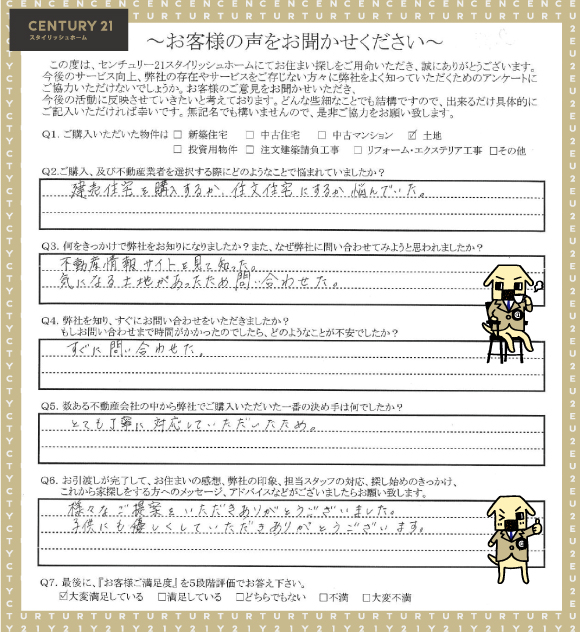 CENTURY 21
スタイリッシュホーム
～お客様の声をお聞かせください～
この度は、センチュリー21スタイリッシュホームにてお住まい探しをご用命いただき、誠にありがとうございます。
今後のサービス向上、弊社の存在やサービスをご存じない方々に弊社をよく知っていただくためのアンケートに
ご協力いただけないでしょうか。お客様のご意見をお聞かせいただき、
今後の活動に反映させていきたいと考えております。どんな些細なことでも結構ですので、出来るだけ具体的に
ご記入いただければ幸いです。無記名でも構いませんので、是非ご協力をお願い致します。
Q1. ご購入いただいた物件は □ 新築住宅 □ 中古住宅 □ 中古マンション ☑ 土地
□ 投資用物件 □ 注文建築請負工事 □ リフォーム・エクステリア工事 □その他
Q2.ご購入、及び不動産業者を選択する際にどのようなことで悩まれていましたか？
建売住宅を購入するか、注文住宅にするか悩んでいた。
Q3. 何をきっかけで弊社をお知りになりましたか？また、なぜ弊社に問い合わせてみようと思われましたか？
不動産情報サイトを見て知った。
気になる土地があったため問い合わせた。
Q4. 弊社を知り、すぐにお問い合わせをいただきましたか？
もしお問い合わせまで時間がかかったのでしたら、どのようなことが不安でしたか？
すぐに問い合わせた。
Q5. 数ある不動産会社の中から弊社でご購入いただいた一番の決め手は何でしたか？
とても丁寧に対応していただいたため。
Q6. お引渡しが完了して、お住まいの感想、弊社の印象、担当スタッフの対応、探し始めのきっかけ、
これから家探しをする方へのメッセージ、アドバイスなどがございましたらお願い致します。
様々なご提案をいただきありがとうございました。
子供にも優しくしていただきありがとうございます。
Q7. 最後に、『お客様ご満足度』を5段階評価でお答え下さい。
☑大変満足している □満足している □どちらでもない □不満 □大変不満